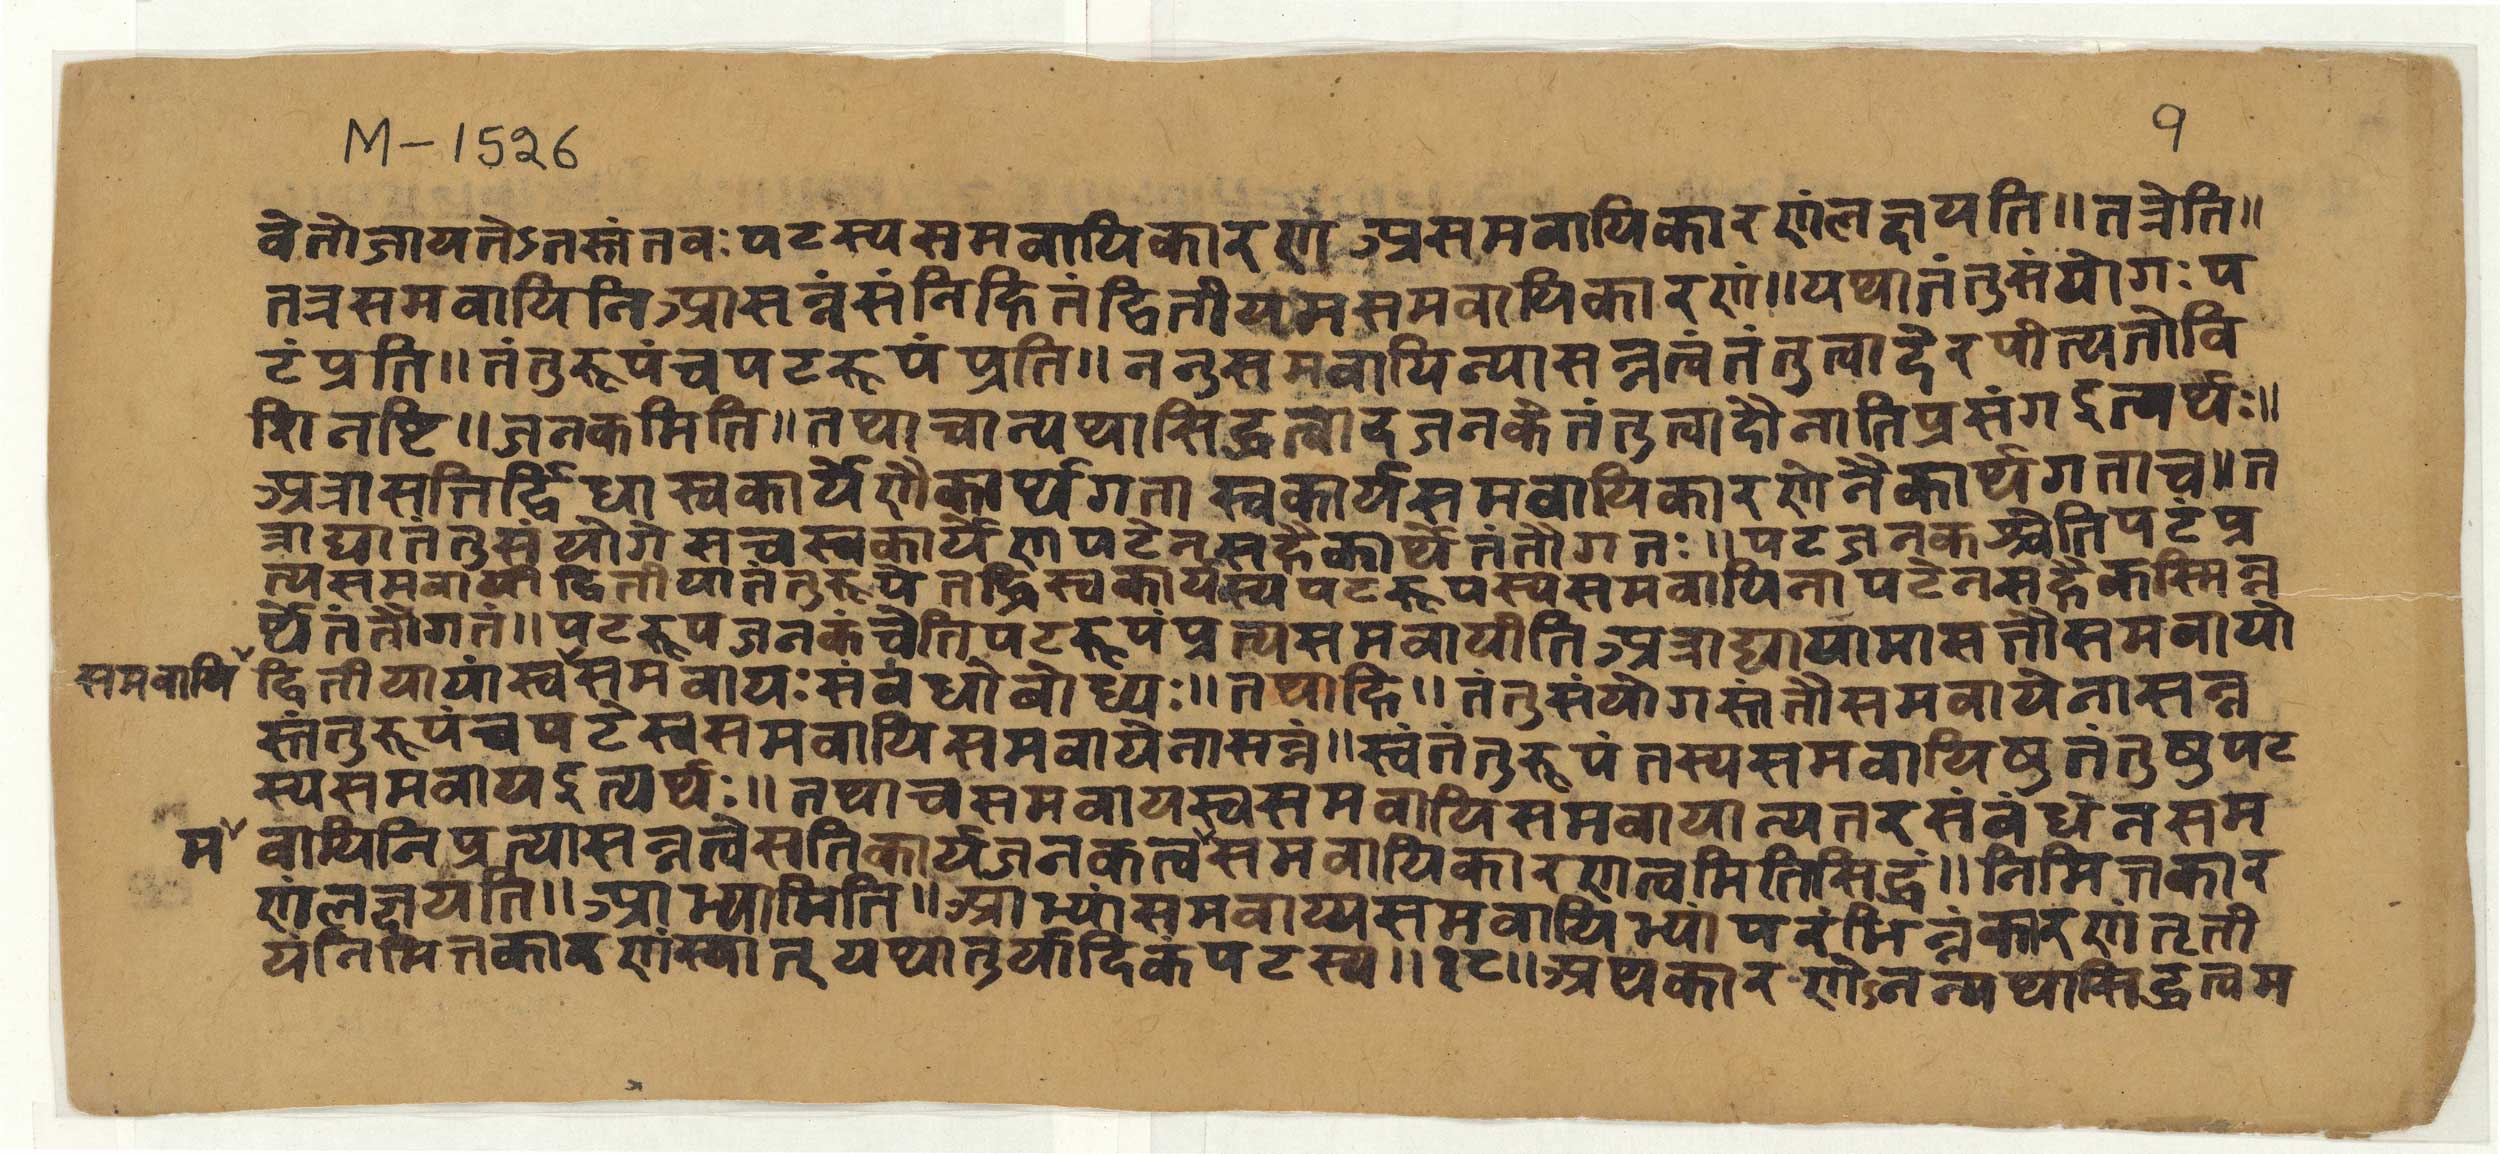 M-1526
१
वेतोजायतेऽतस्तंतवःपटस्यसमवायिकारणं असमवायिकारणंलक्षयति॥तत्रेति॥
तत्रसमवायिनिआसन्नंसंनिहितंद्वितीयमसमवायिकारणं॥यथातंतुसंयोगःप
टंप्रति॥तंतुरूपंचपटरूपंप्रति॥ननुसमवायिन्यासन्नत्वंतंतुत्वादेरपीत्यतोवि
शिनष्टि॥जनकमिति॥तथाचान्यथासिद्धत्वादजनकेतंतुत्वादौनातिप्रसंगइत्यर्थः॥
अत्रासत्तिर्द्विधास्वकार्येणैकार्थगतास्वकार्यसमवायिकारणेनैकार्थगताच॥त
त्राद्यातंतुसंयोगेसचस्वकार्येणपटेनसहैकार्थेतंतौगतः॥पटजनकश्चेतिपटंप्र
त्यसमवायीद्वितीयातंतुरूपेतद्धिस्वकार्यस्यपटरूपस्यसमवायिनापटेनसहैकस्मिन्न
र्थेतंतौगतं॥पटरूपजनकंचेतिपटरूपंप्रत्यसमवायीतिअत्राद्यायामासत्तौसमवायो
समवायि द्वितीयायांस्वसमवायःसंबंधोबोध्यः॥तथाहि॥तंतुसंयोगस्तंतौसमवायेनासन्न
स्तंतुरूपंचपटेस्वसमवायिसमवायेनासन्नं॥स्वंतंतुरूपंतस्यसमवायिषुतंतुषुपट
स्यसमवायइत्यर्थः॥तथाचसमवायस्वसमवायिसमवायान्यतरसंबंधेनसम
म वायिनिप्रत्यासन्नत्वेसतिकार्यजनकत्वसमवायिकारणत्वमितिसिद्धं॥निमित्तकार
णंलक्षयति॥आभ्यामिति॥आभ्यांसमवाय्यसमवायिभ्यांपरंभिन्नंकारणंतृती
यंनिमित्तकारणंस्यात्यथातुर्यादिकंपटस्य॥१८॥अथकारणेऽनन्यथासिद्धत्वम